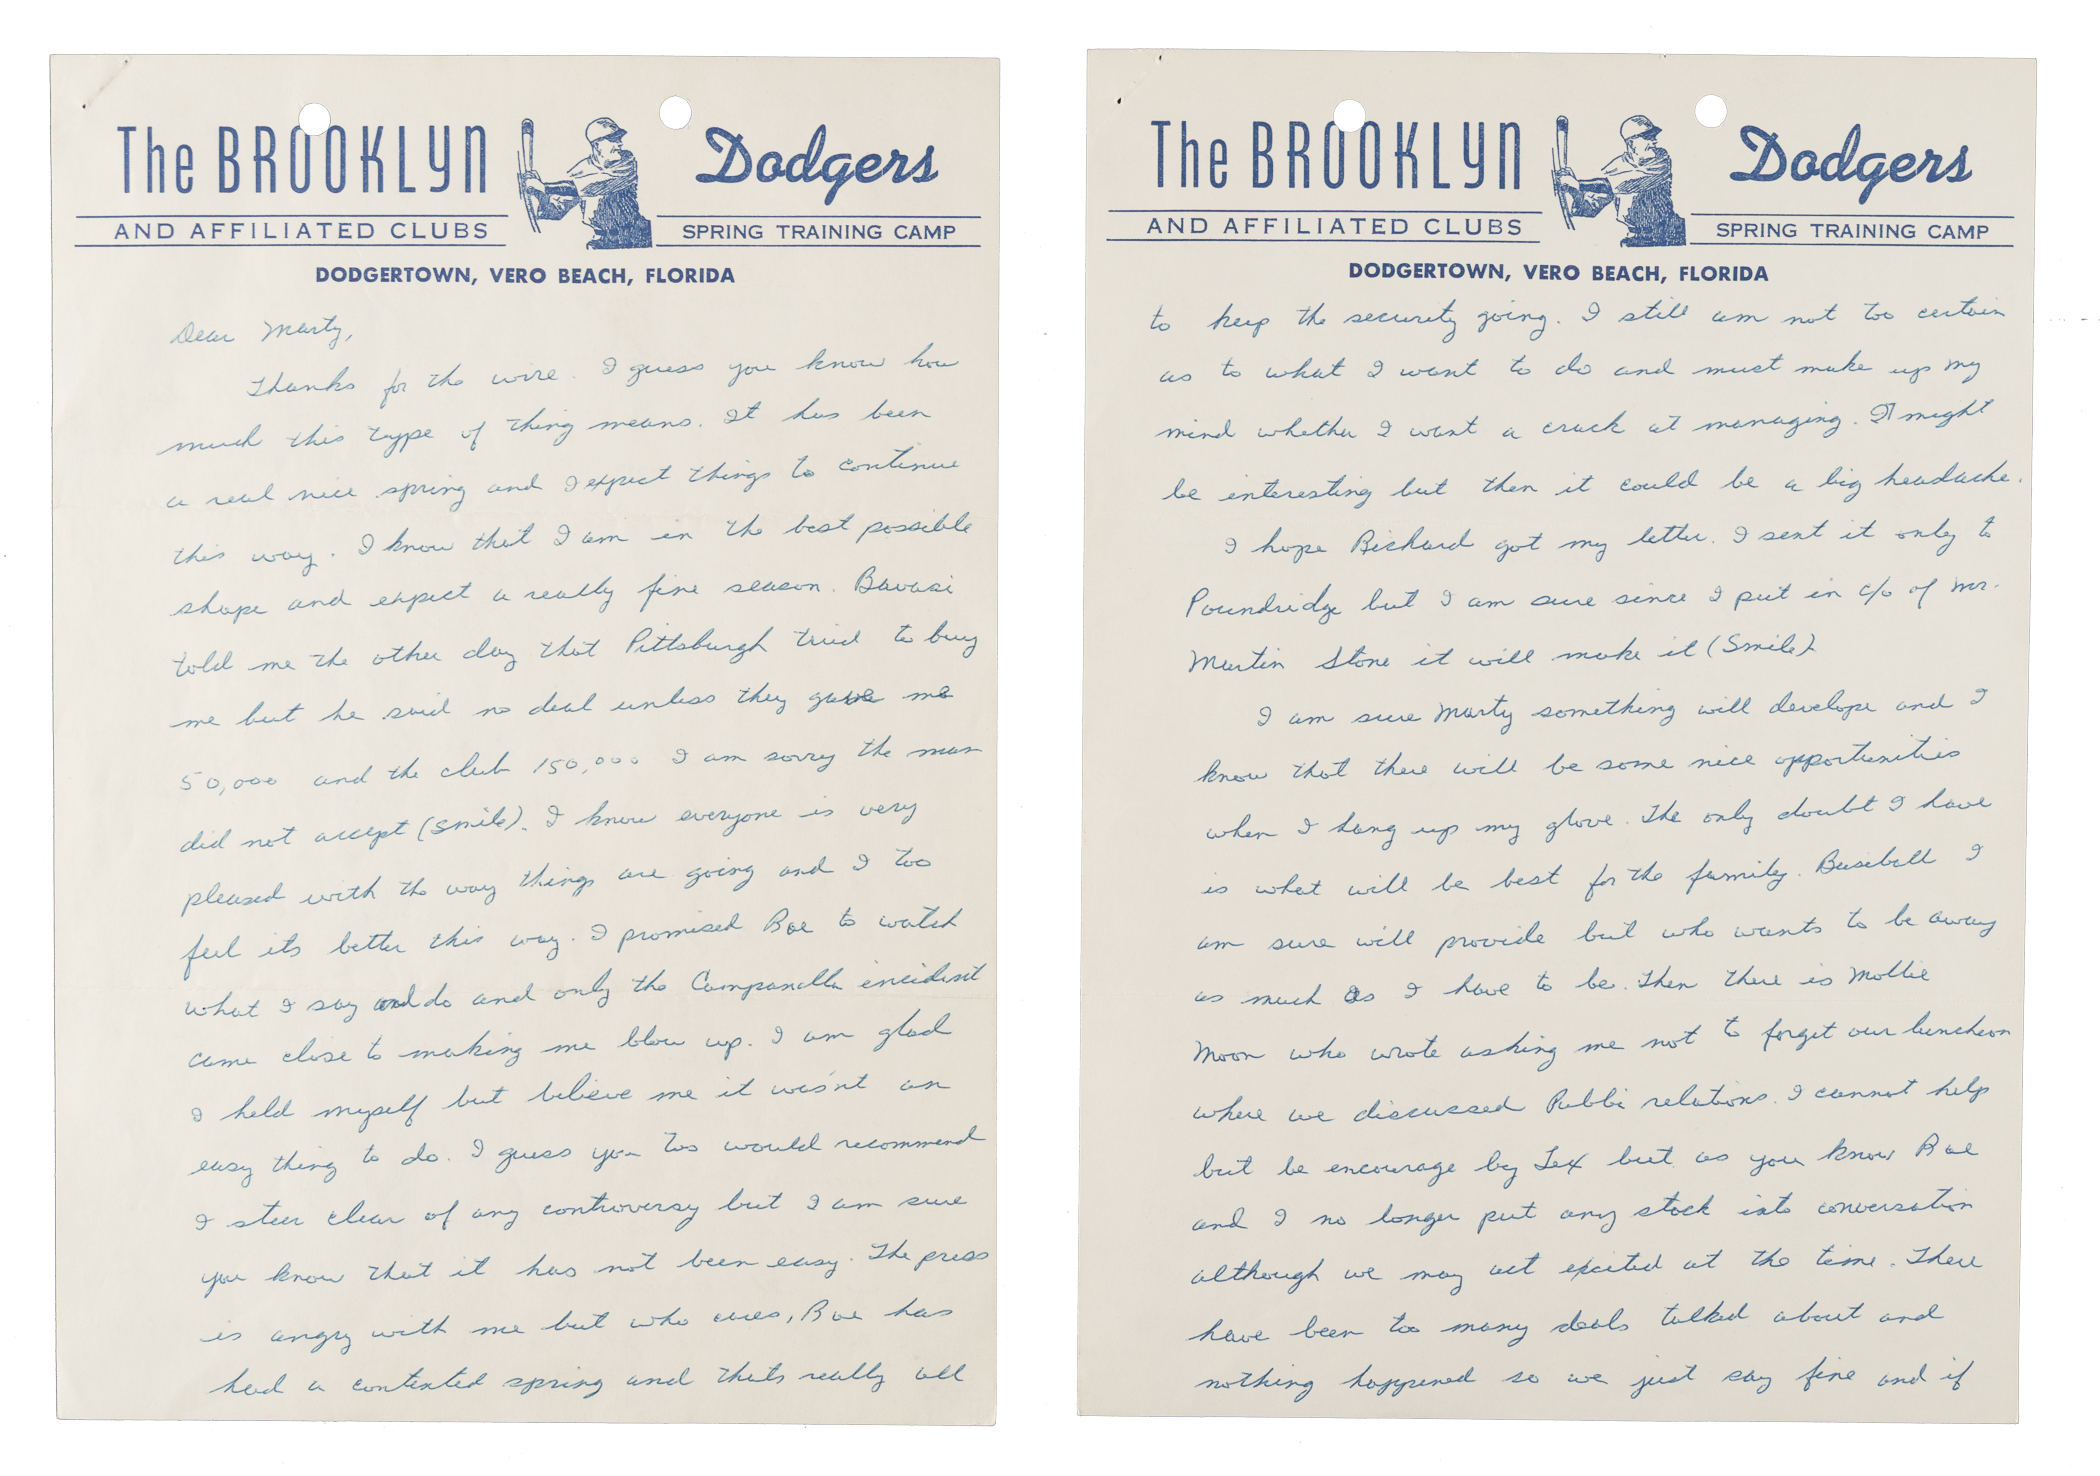 The BROOKLYN Dodgers
AND AFFILIATED CLUBS SPRING TRAINING CAMP
DODGERTOWN, VERO BEACH, FLORIDA
Dear Marty,
Thanks for the wire. I guess you know how
much this type of thing means. It has been
a real nice spring and I expect things to continue
this way. I know that I am in the best possible
shape and expect a really fine season. Bavasi
told me the other day that Pittsburgh tried to buy
me but he said no deal unless they gave me
50,000 and the club 150,000 I am sorry the man
did not accept (smile). I know everyone is very
pleased with the way things are going and I too
feel its better this way. I promised Rae to watch
what I say and do and only the Campanella incident
came close to making me blow up. I am glad
I held myself but believe me it wasn't an
easy thing to do. I guess you too would recommend
I steer clear of any controversy but I am sure
you know that it has not been easy. The press
is angry with me but who cares, Rae has
had a contented spring and thats really all
The BROOKLYN Dodgers
AND AFFILIATED CLUBS SPRING TRAINING CAMP
DODGERTOWN, VERO BEACH, FLORIDA
to keep the security going. I still am not too certain
as to what I want to do and must make up my
mind whether I want a crack at managing. It might
be interesting but then it could be a big headache.
I hope Richard got my letter. I sent it only to
Poundridge but I am sure since I put in c/o of Mr.
Martin Stone it will make it (Smile)
I am sure Marty something will develope and I
know that there will be some nice opportunities
when I hang up my glove. The only doubt I have
is what will be best for the family. Baseball I
am sure will provide but who wants to be away
as much as I have to be. Then there is Mollie
Moon who wrote asking me not to forget our luncheon
where we discussed Public relations. I cannot help
but be encourage by Lex but as you know Rae
and I no longer put any stock into conversation
although we may act excited at the time. There
have been too many deals talked about and
nothing happened so we just say fine and if